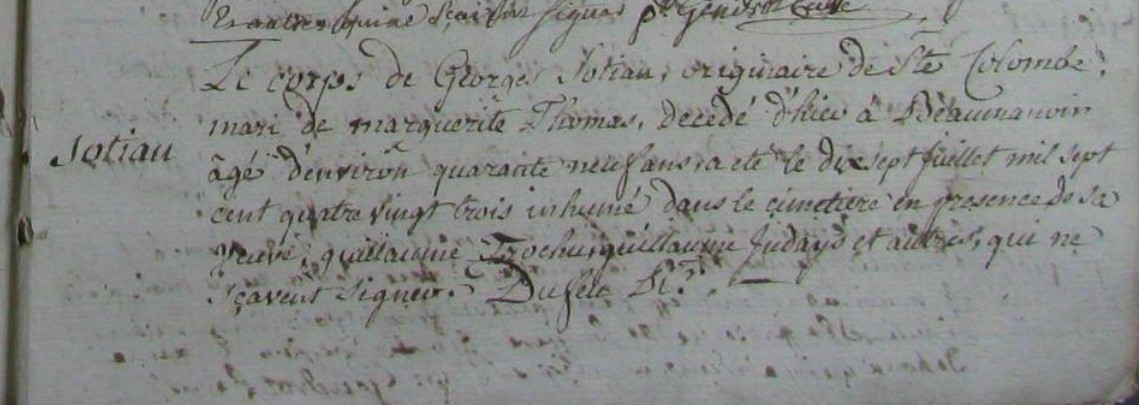 et autres qui ne sçavent signer pr. Gendrot Curé
Le corps de Georges Jotiau, originaire de Ste Colombe,
mari de marguerite Thomas, decedé d'hier à Beaumanoir
Jotiau
âgé d'environ quarante neuf ans, a eté le dix sept Juillet mil sept
cent quatre vingt trois inhumé dans le cimetiere en presence de sa
veuve, guillaume guillaume Judays et autres, qui ne
sçavent signer.